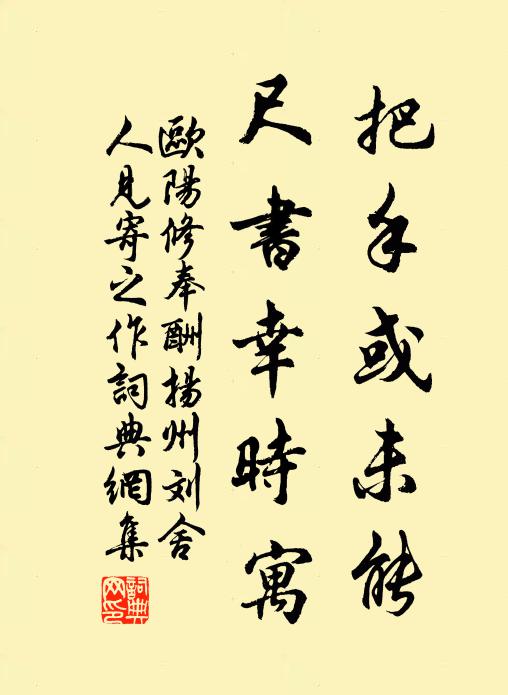 把手或未能
尺書幸時寓
歐陽修奉酬揚州刘舍
人見寄之作詞典網集
詞典網印